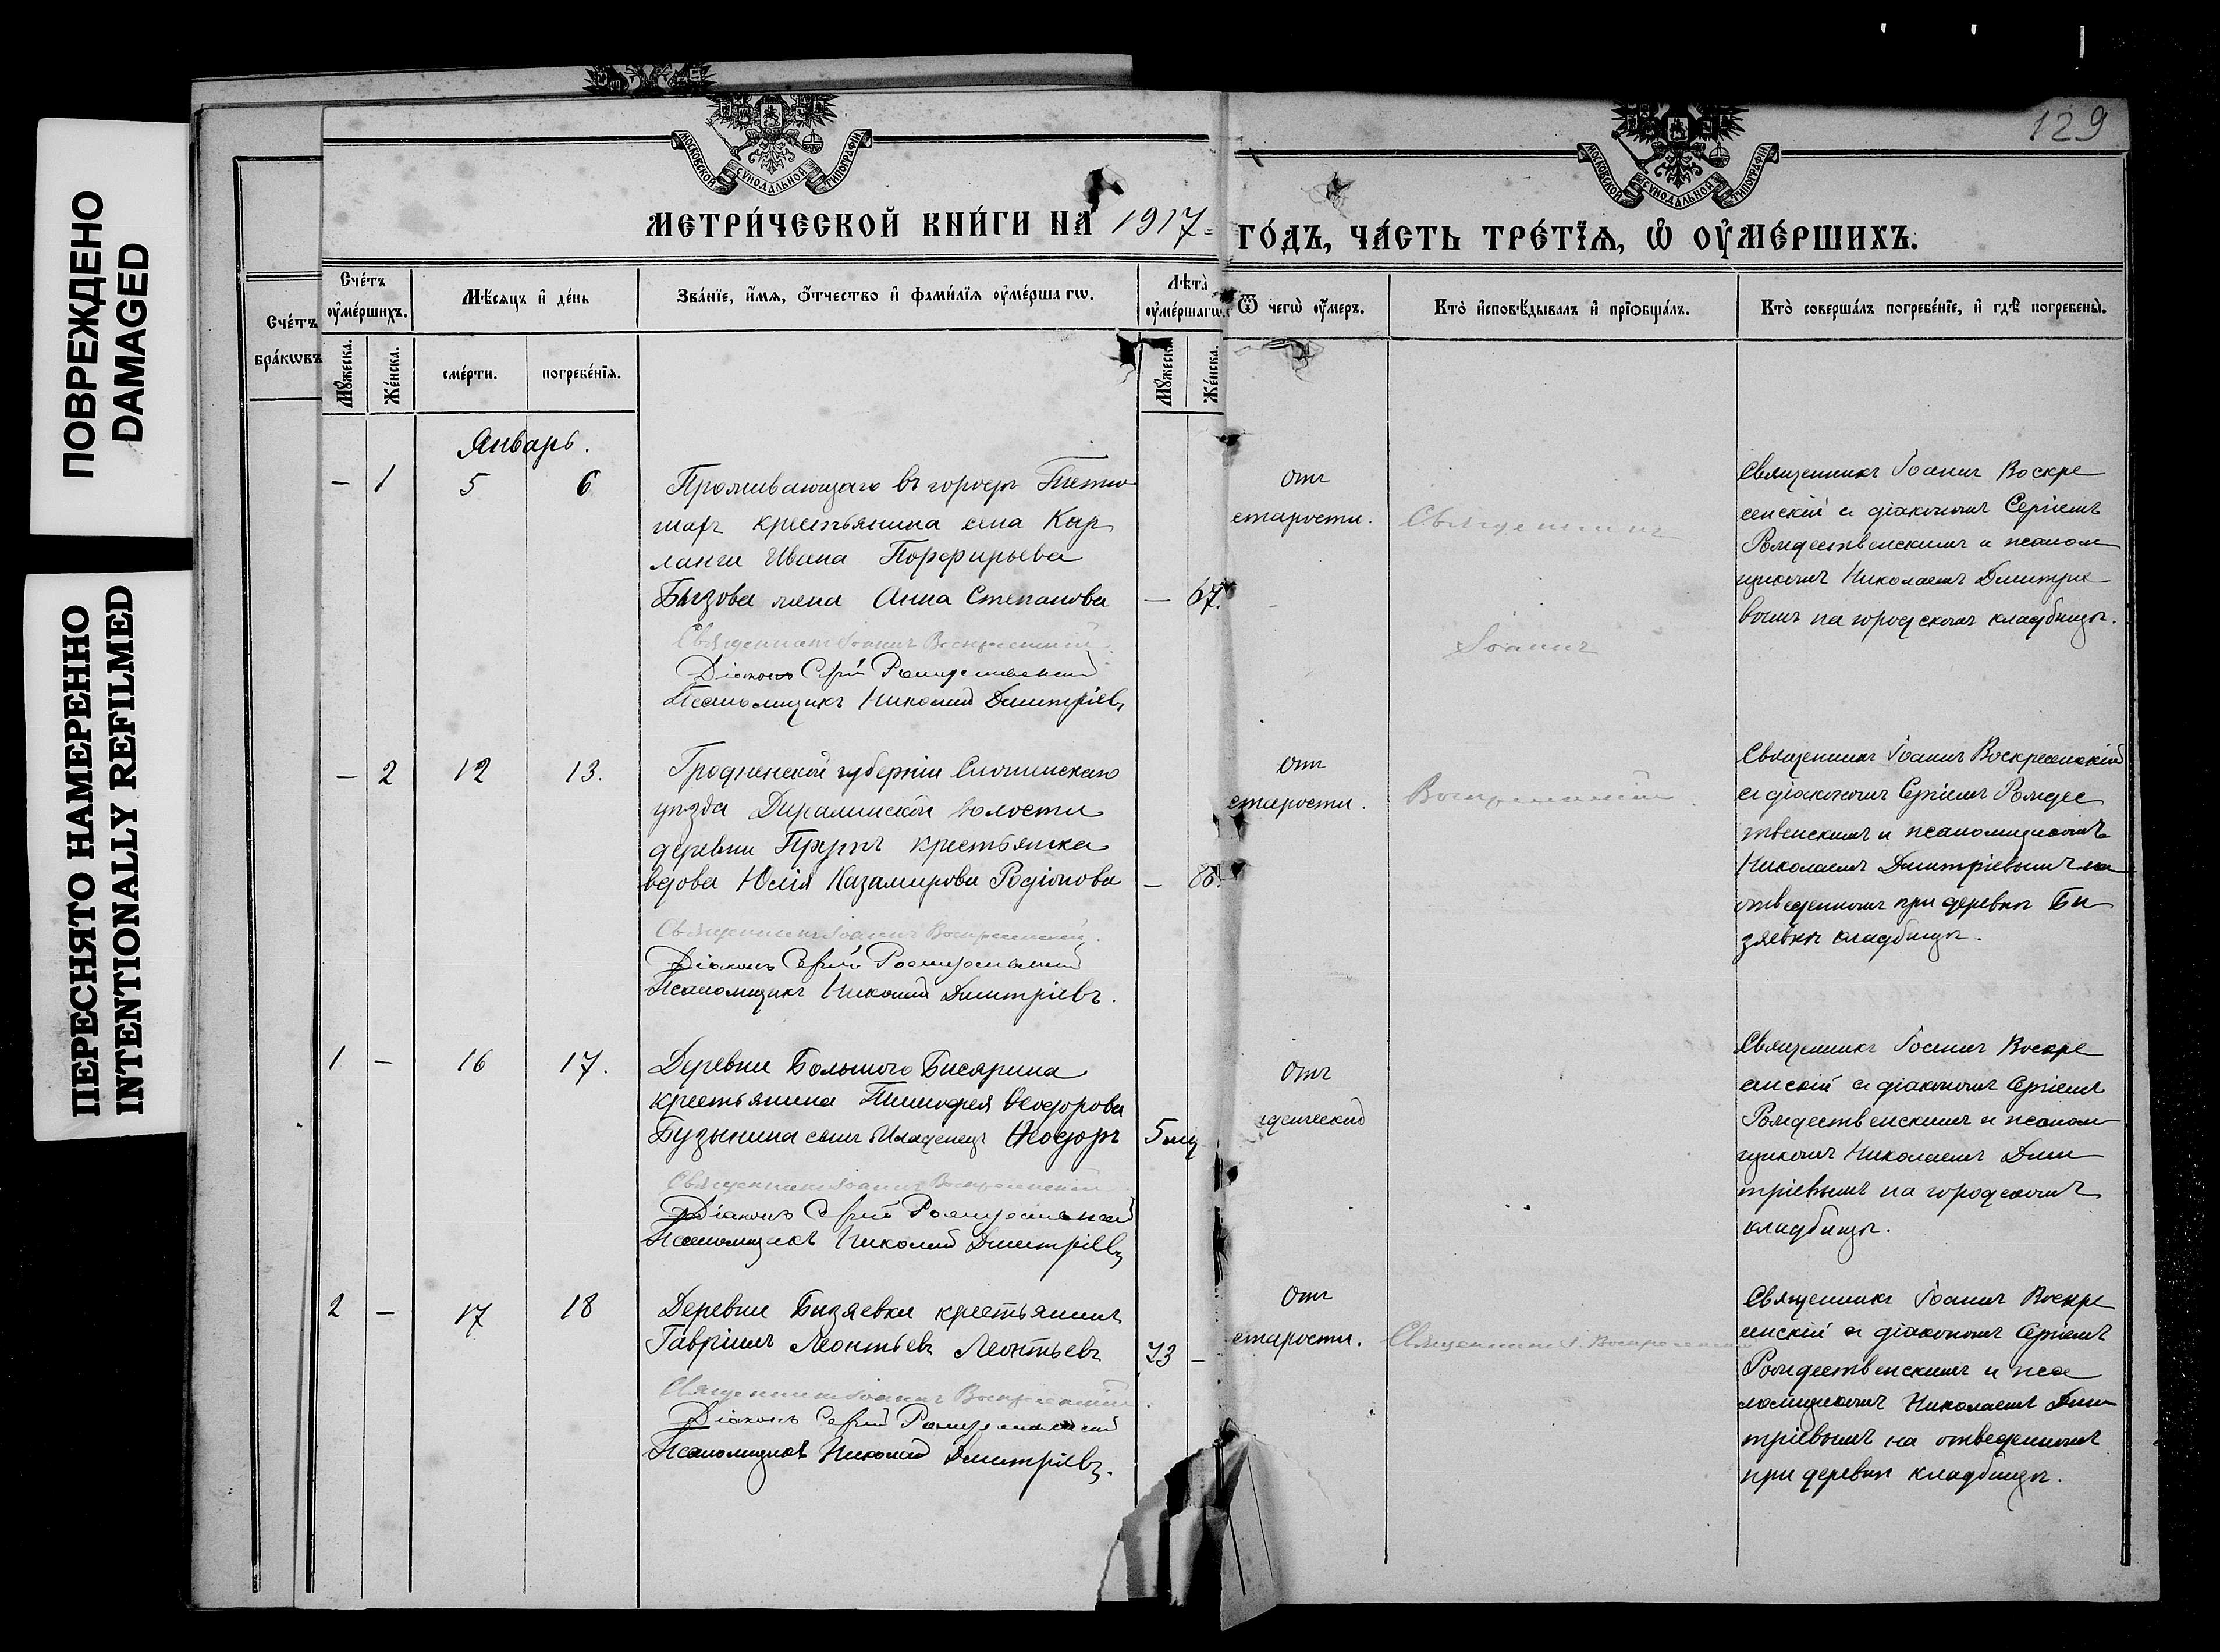 129
ПОВРЕЖДЕНО
DAMAGED
ПЕРЕСНЯТО НАМЕРЕННО
INTENTIONALLY REFILMED
МОСКОВСКОЙ СѴНОДАЛЬНОЙ ТИПОГРАФІИ
МОСКОВСКОЙ СѴНОДАЛЬНОЙ ТИПОГРАФІИ
МЕТРИ́ЧЕСКОЙ КНИ́ГИ НА 1917 ГО́ДЪ, ЧА́СТЬ ТРЕ́ТЇѦ, Ѡ ОУМЕ́РШИХЪ.
Сче́тъ бра́кѡвъ
Сче́тъ оуме́ршихъ.
Мѣ́сяцъ и де́нь
Зва́нїе, и́мя, о́тчество и фами́лїя оуме́ршагѡ.
Лѣта̀ оуме́ршагѡ.
Ѿ чегѡ̀ оу́меръ.
Кто̀ исповѣ́дывалъ и прїобща́лъ.
Кто̀ соверша́лъ погребе́нїе, и гдѣ̀ погребены̀.
Мꙋ́жеска.
Же́нска.
сме́рти.
погребе́нїя.
Мꙋ́жеска
Же́нска.
Январь.
— 1 5 6
Проживающаго въ городѣ Тетю
шахъ крестьянина села Кар
ланги Ивана Порфирьева
Бызова жена Анна Степанова
— 67.
Священникъ Іоаннъ Воскресенскій
Діаконъ Сергій Рождественскій
Псаломщикъ Николай Дмитріевъ
отъ
старости.
Священникъ
Іоаннъ
Священникъ Іоаннъ Воскре
сенскій съ діакономъ Сергіемъ
Рождественскимъ и псалом
щикомъ Николаемъ Дмитріе
вымъ на городскомъ кладбищѣ.
— 2 12 13.
Гродненской губерніи Слонимскаго
уѣзда волости
деревни крестьянка
вдова Юлія Казамирова Родіонова
—
Священникъ Іоаннъ Воскресенскій.
Діаконъ Сергій Рождественскій
Псаломщикъ Николай Дмитріевъ.
отъ
старости.
Воскресенскій
Священникъ Іоаннъ Воскресенскій
съ діакономъ Сергіемъ Рождес
твенскимъ и псаломщикомъ
Николаемъ Дмитріевымъ на
отведенномъ при деревнѣ Бы
зяевкѣ кладбищѣ.
1 — 16 17.
Деревни Большого Бисярина
крестьянина Тимофея Ѳеодорова
Бузыкина сынъ младенецъ Ѳеодоръ
5 мц
Священникъ Іоаннъ Воскресенскій
Діаконъ Сергій Рождественскій
Псаломщикъ Николай Дмитріевъ
Отъ
Священникъ Іоаннъ Воскре
сенскій съ діакономъ Сергіемъ
Рождественскимъ и псалом
щикомъ Николаемъ Дми
тріевымъ на городскомъ
кладбищѣ.
2 — 17 18
Деревни Бызяевки крестьянинъ
Гавріилъ Леонтьевъ Леонтьевъ
73 —
Священникъ Іоаннъ Воскресенскій.
Діаконъ Сергій Рождественскій
Псаломщикъ Николай Дмитріевъ.
Отъ
старости.
Священникъ І. Воскресенскій
Священникъ Іоаннъ Воскре
сенскій съ діакономъ Сергіемъ
Рождественскимъ и пса
ломщикомъ Николаемъ Дми
тріевымъ на отведенномъ
при деревнѣ кладбищѣ.